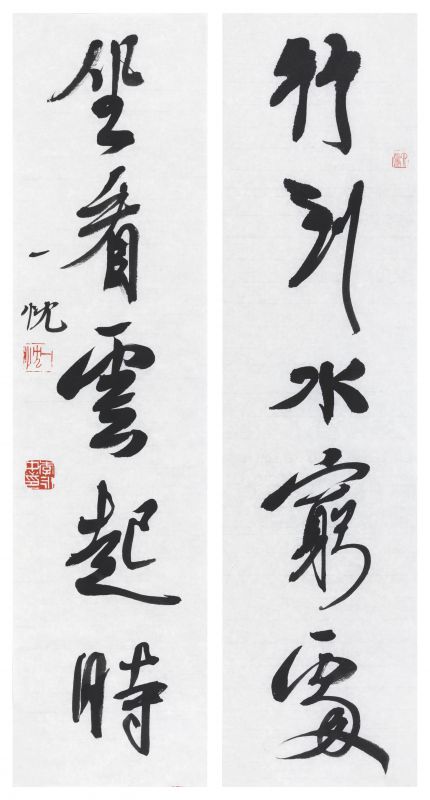 行到水窮處
坐看雲起時
一忱